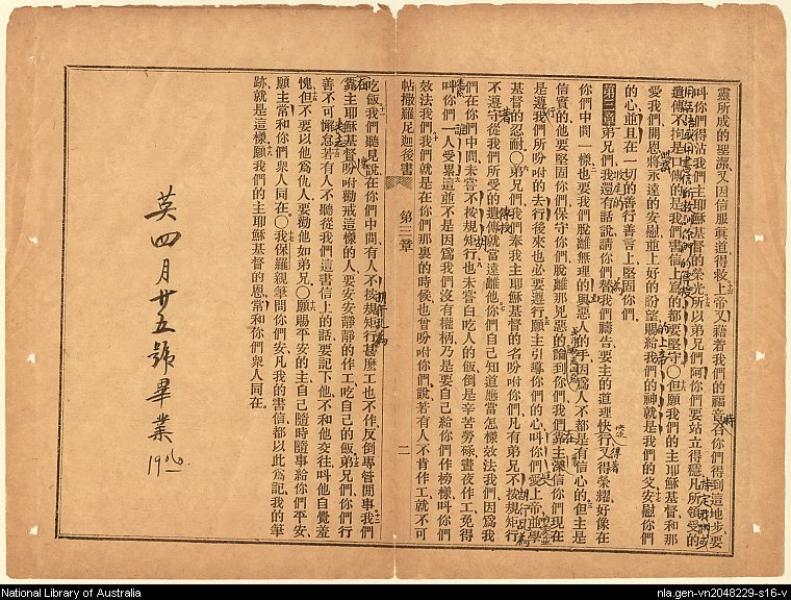 靈所成的聖潔又因信服眞道得救上帝又藉着我們的福音召你們得到這地步要
叫你們得沾我們主耶穌基督的榮光所以弟兄們阿你們要站立得穩凡所領受的
遺傳不拘是口傳的是我們書信上寫的都要堅守○但願我們的主耶穌基督和那
愛我們開恩將永遠的安慰並上好的盼望賜給我們的神就是我們的父安慰你們
的心並且在一切的善行善言上堅固你們
第三章弟兄們我還有話說請你們替我們禱告要主的道理快行又得榮耀好像在
你們中間一樣也要我們脫離無理的與惡人的手因爲人不都是有信心的但主是
信實的他要堅固你們保守你們脫離那兇惡的論到你們我們靠主深信你們現在
是遵我們所吩咐的去行後來也必要遵行願主引導你們的心叫你們愛上帝並學
基督的忍耐○弟兄們我們奉我主耶穌基督的名吩咐你們凡有弟兄不按規矩行
不遵守從我們所受的遺傳就當遠離他你們自己知道應當怎樣效法我們因爲我
們在你們中間未嘗不按規矩行也未嘗白吃人的飯倒是辛苦勞碌晝夜作工免得
叫你們一人受累這並不是因爲我們沒有權柄乃是要自己給你們作榜樣叫你們
效法我們我們就是在你們那裏的時候也曾吩咐你們說若有人不肯作工就不可
帖撒羅尼迦後書 第三章 二
吃飯我們聽見說在你們中間有人不按規矩行甚麼工也不作反倒專管閒事我們
靠主耶穌基督吩咐勸戒這樣的人要安安靜靜的作工吃自己的飯弟兄們你們行
善不可懈怠若有人不聽從我們這書信上的話要記下他不和他交往叫他自覺羞
愧但不要以他爲仇人要勸他如弟兄○願賜平安的主自己隨時隨事給你們平安
願主常和你們衆人同在○我保羅親筆問你們安凡我的書信都以此爲記我的筆
跡就是這樣願我們的主耶穌基督的恩常和你們衆人同在
英四月廿五號畢業
National Library of Australia
nla.gen-vn2048229-s16-v